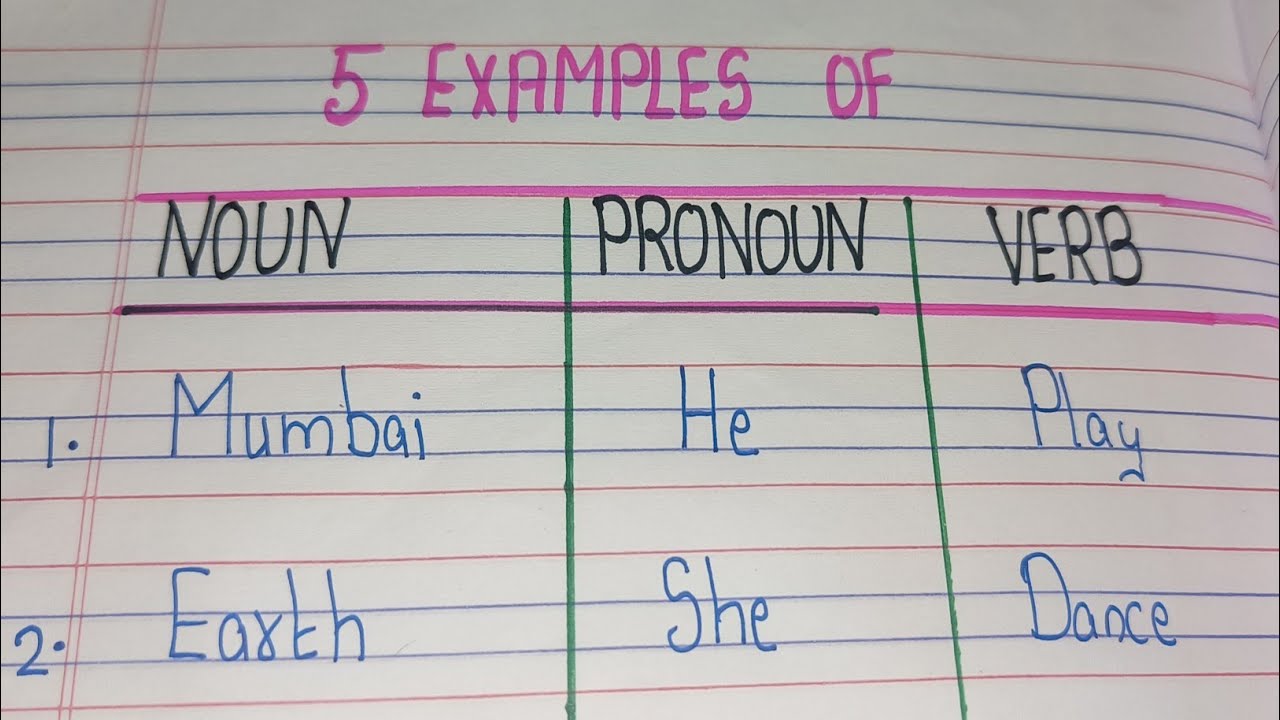 5 EXAMPLES OF
NOUN PRONOUN VERB
1. Mumbai He Play
2. Earth She Dance